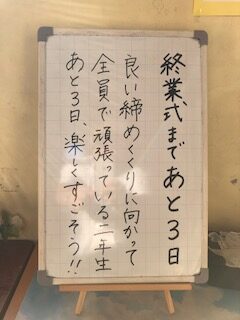 終業式まであと3日
良い締めくくりに向かって
全員で頑張っている二年生
あと3日、楽しくすごそう!!